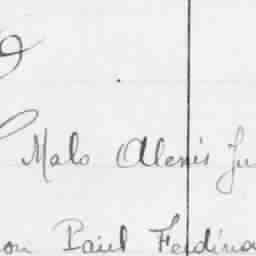 Malo Alexis Ju
on Paul Ferdina